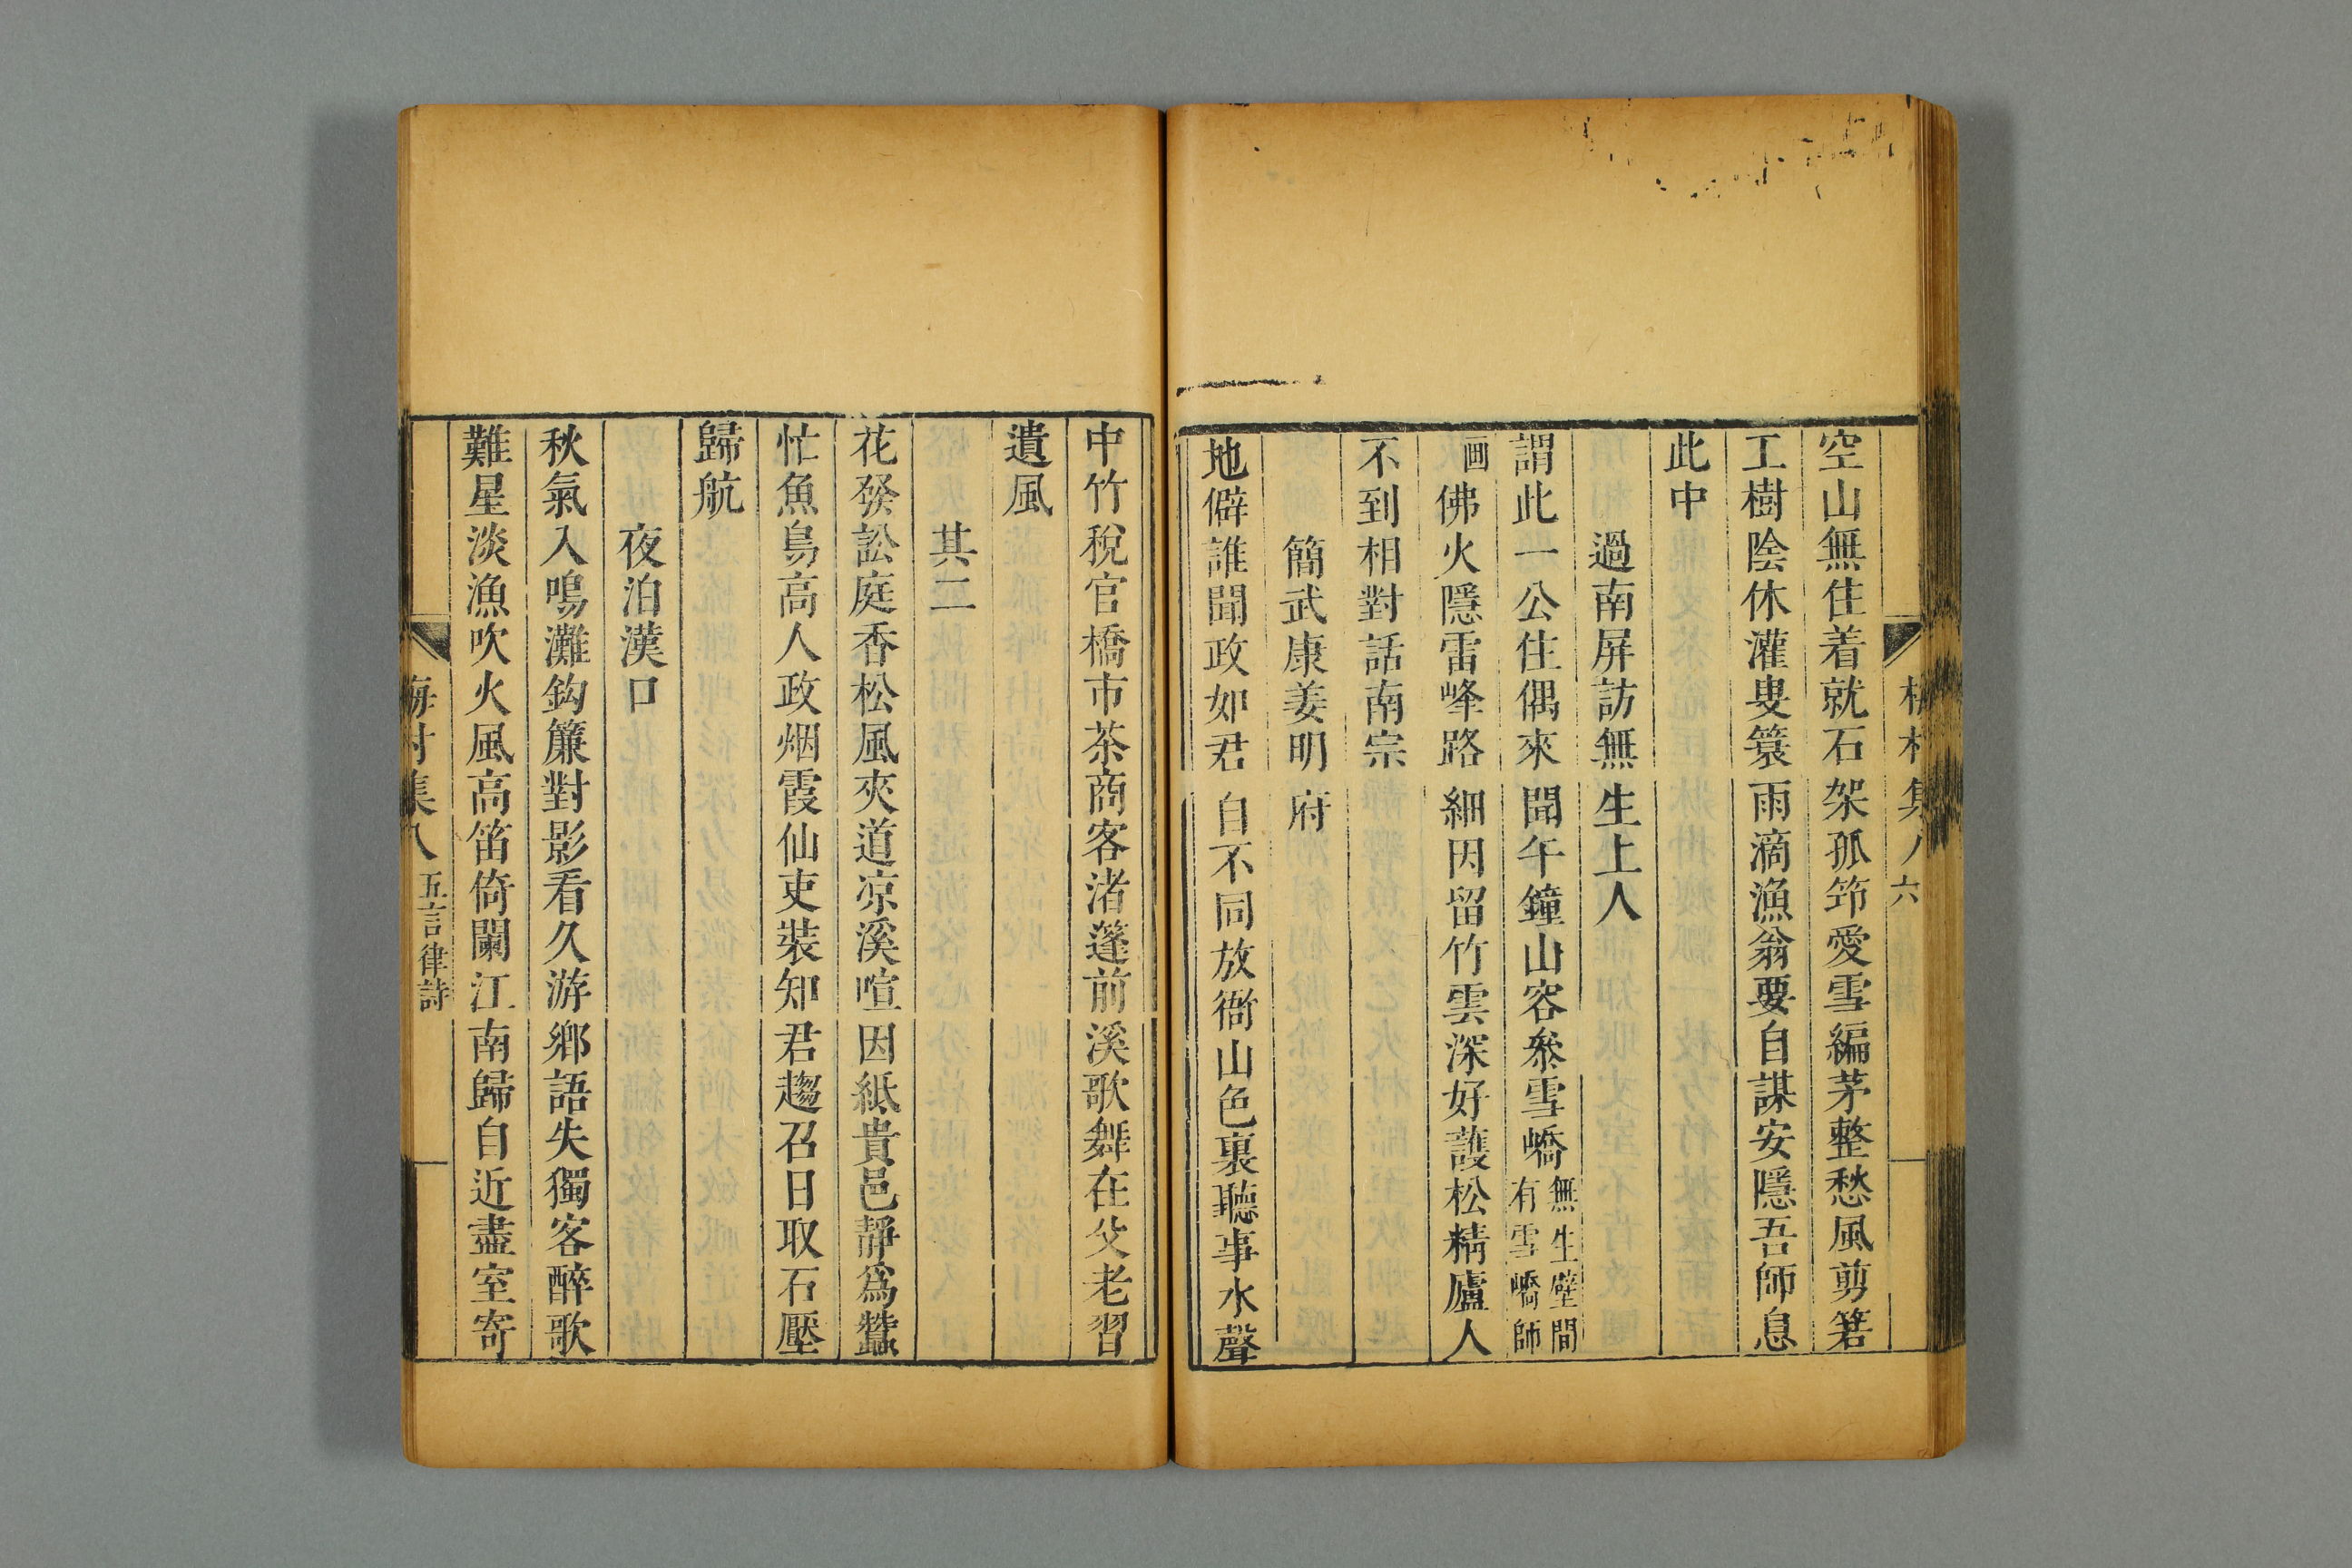 空山無住着就石架孤筇愛雪編茅整愁風剪箬
工樹陰休灌叟簑雨滴漁翁要自謀安隱吾師息
此中
過南屏訪無生上人
謂此一公住偶來聞午鐘山容叅雪嶠無生壁間有雪嶠師
画佛火隱雷峰路細因留竹雲深好護松精廬人
不到相對話南宗
簡武康姜明府
地僻誰聞政如君自不同放衙山色裏聽事水聲
中竹稅官橋市茶商客渚蓬前溪歌舞在父老習
遺風
其二
花發訟庭香松風夾道凉溪喧因紙貴邑靜爲蠶
忙魚鳥高人政烟霞仙吏裝知君趨召日取石壓
歸航
夜泊漢口
秋氣入鳴灘鈎簾對影看久游鄉語失獨客醉歌
難星淡漁吹火風高笛倚闌江南歸自近盡室寄
梅村集八 五言律詩